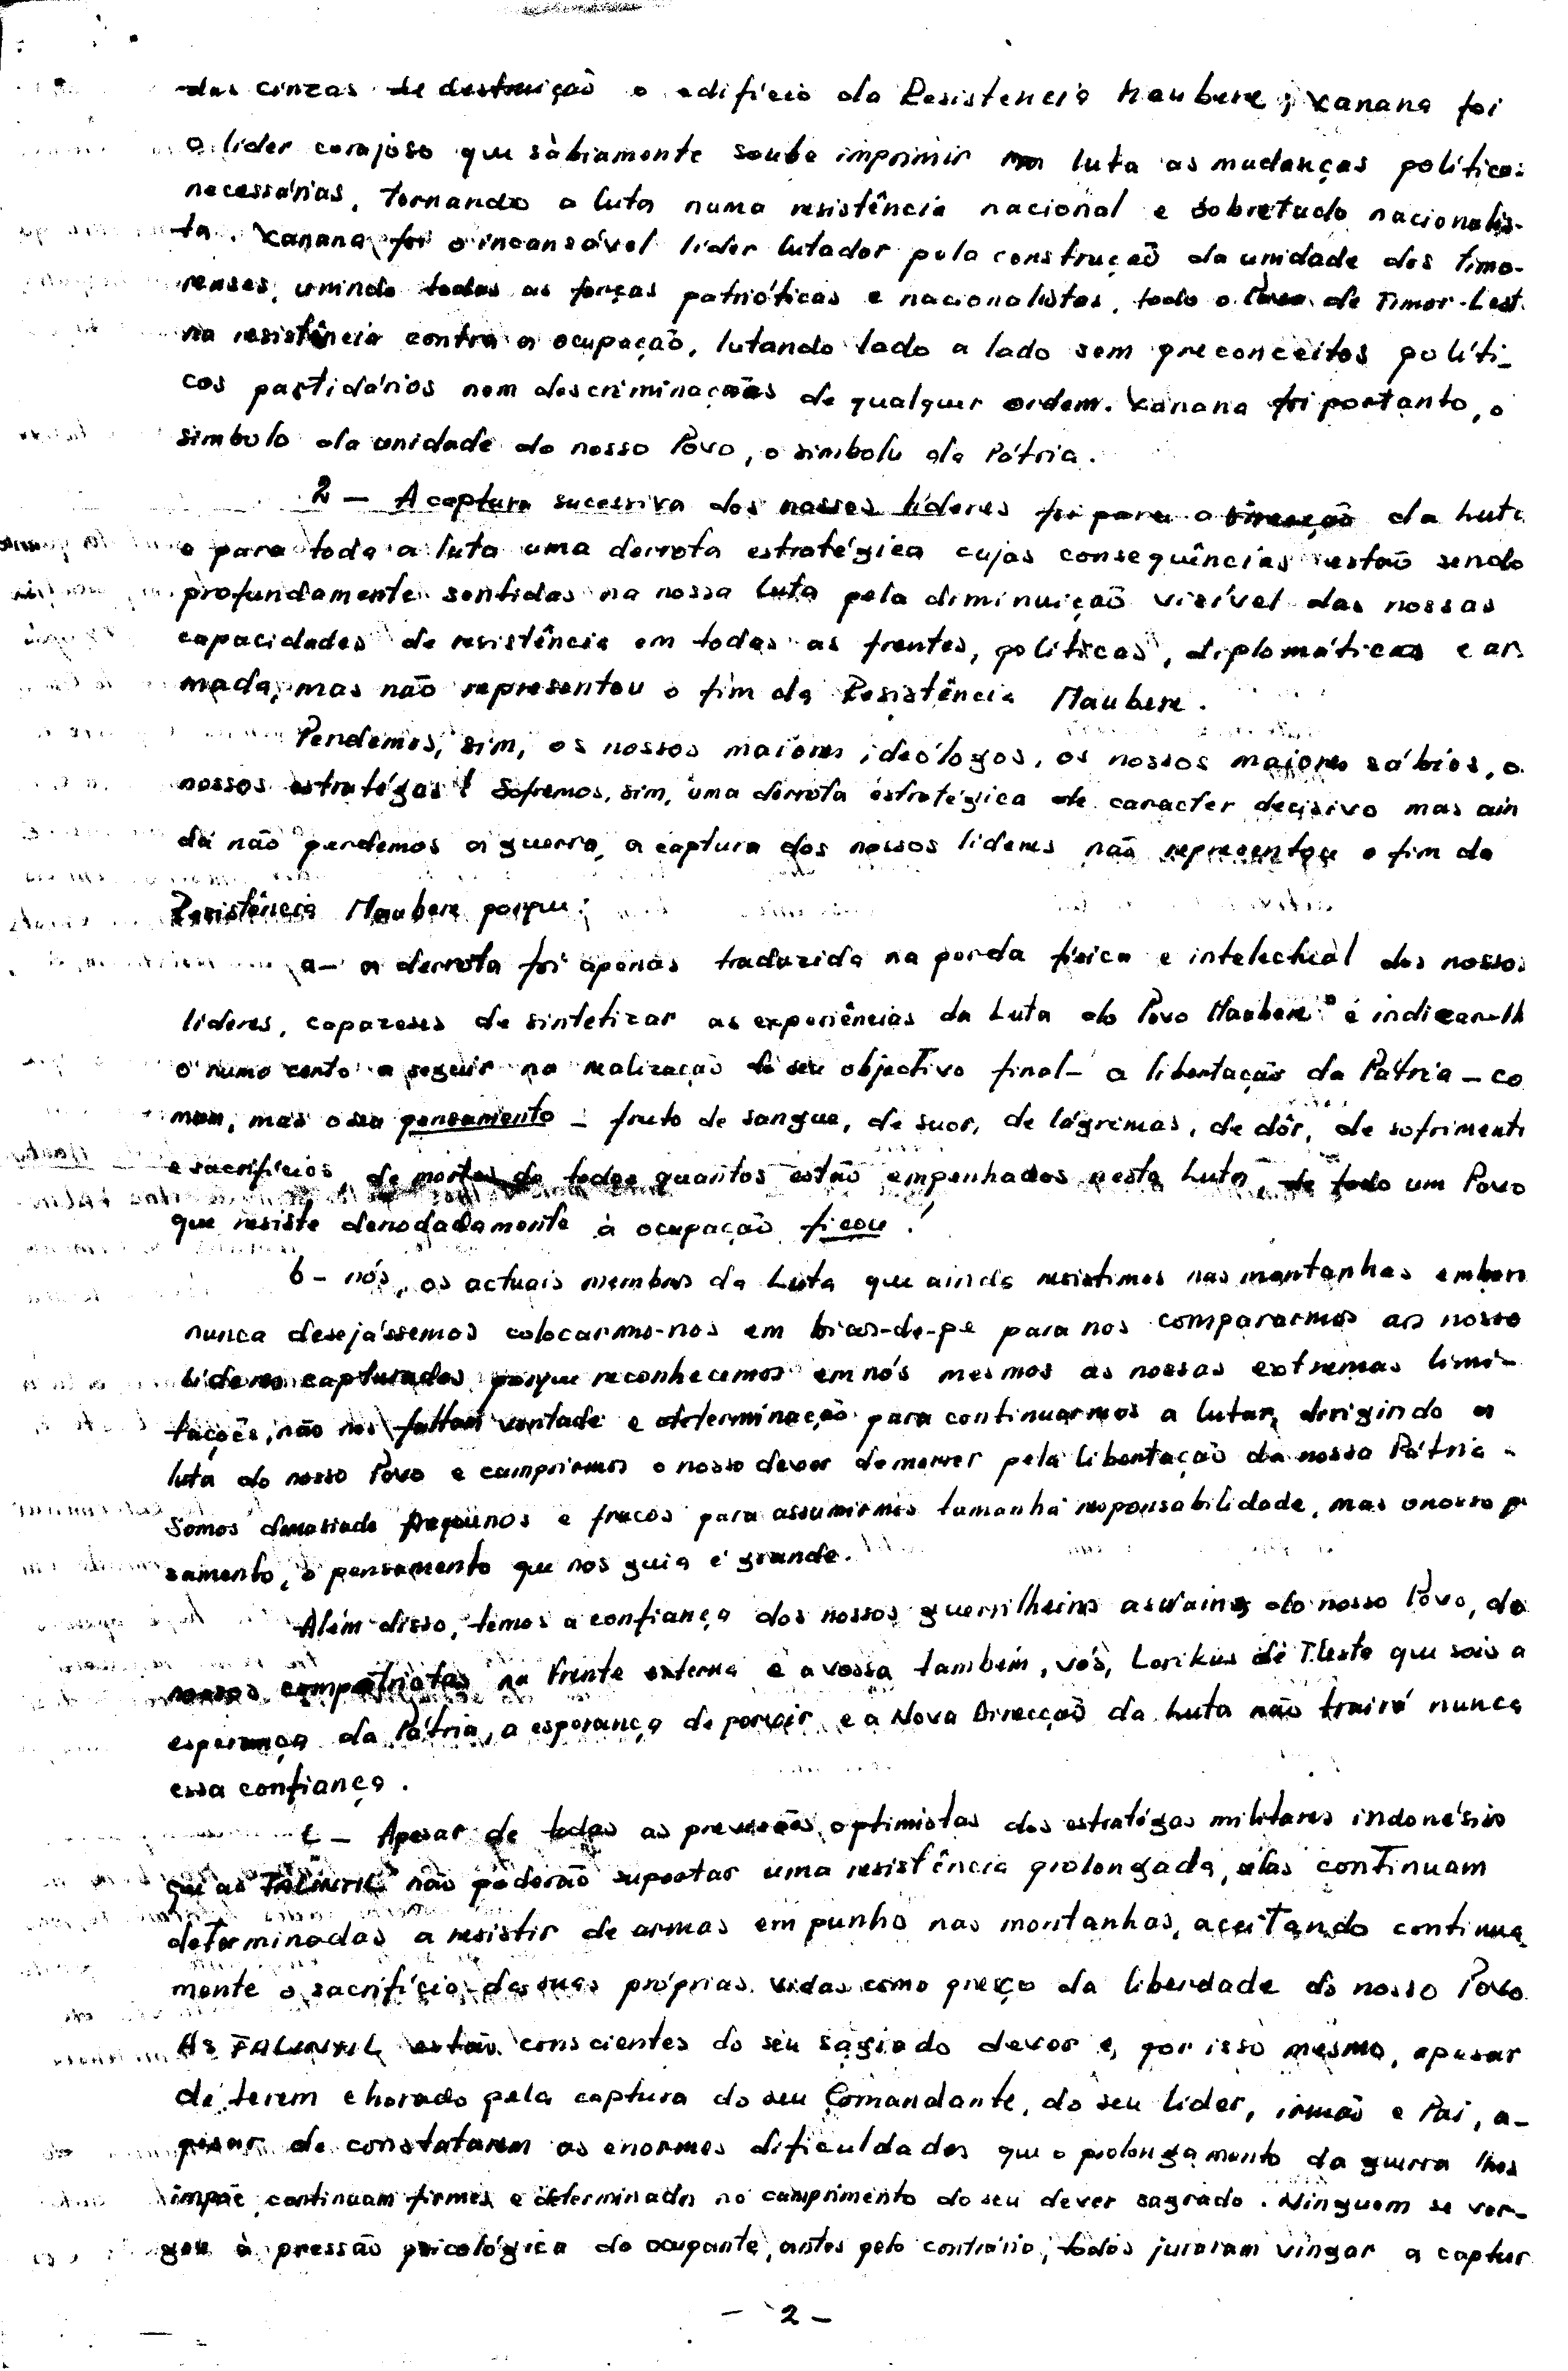 das cinzas de destruição o edifício da Resistência Maubere; Xanana foi
o líder corajoso que sàbiamente soube imprimir na luta as mudanças política
necessárias, tornando a luta numa resistência nacional e sobretudo nacionalis-
ta. Xanana foi o incansável líder lutador pela construção da unidade dos timo-
renses, unindo todas as forças patrióticas e nacionalistas, todo o Povo de Timor-Lest
na resistência contra a ocupação, lutando lado a lado sem preconceitos políti-
cos partidários nem descriminações de qualquer ordem. Xanana foi portanto, o
simbolo da unidade do nosso Povo, o simbolo da Pátria.
2 - A captura sucessiva dos nossos líderes foi para a Direcção da Luta
e para toda a luta uma derrota estratégica cujas consequências estão sendo
profundamente sentidas na nossa Luta pela diminuição visível das nossas
capacidades de resistência em todas as frentes, políticas, diplomáticas e ar
mada, mas não representou o fim da Resistência Maubere.
Perdemos, sim, os nossos maiores ideólogos, os nossos maiores sábios, o
nossos estratégas! Sofremos, sim, uma derrota estratégica de caracter decisivo mas ain
da não perdemos a guerra, a captura dos nossos líderes não representou o fim da
Resistência Maubere porque:
a- a derrota foi apenas traduzida na perda física e intelectual dos nossos
líderes, capazeses de sintetizar as experiências da Luta do Povo Maubere e indicar-lh
o rumo certo a seguir na realização do seu objectivo final - a libertação da Pátria - co
mum, mas o seu pensamento - fruto de sangue, de suor, de lágrimas, de dôr, de sofriment
e sacrifícios, de mortes de todos quantos estão empenhados nesta Luta, de todo um Povo
que resiste denodadamente à ocupação ficou!
b - nós, os actuais membros da Luta que ainda resistimos nas montanhas embora
nunca desejássemos colocarmo-nos em bicos-de-pé para nos compararmos ao nosso
líderes capturados porque reconhecemos em nós mesmos as nossas extremas limi-
tações, não nos faltam vontade e determinação para continuarmos a lutar, dirigindo a
luta do nosso Povo e cumprirmos o nosso dever de morrer pela libertação da nossa Pátria.
Somos demasiado pequenos e fracos para assumirmos tamanha responsabilidade, mas o nosso p
samento, o pensamento que nos guia é grande.
Além disso, temos a confiança dos nossos guerrilheiros aswains do nosso Povo, do
nossos compatriotas na Frente externa e a vossa também, vós, Lorikus de T.Leste que sois a
esperança da Pátria, a esperança de porvir e a Nova Direcção da Luta não trairá nunca
essa confiança.
c - Apesar de todas as previsões optimistas dos estratégas militares indonésio
que as "FALINTIL" não poderão suportar uma resistência prolongada, elas continuam
determinadas a resistir de armas em punho nas montanhas, aceitando continua
mente o sacrifício das suas próprias vidas como preço da liberdade do nosso Povo.
As FALINTIL estão conscientes do seu sagrado dever e, por isso mesmo, apesar
de terem chorado pela captura do seu Comandante, do seu líder, irmão e Pai, a-
pesar de constatarem as enormes dificuldades que o prolongamento da guerra lhes
impõe continuam firmes e determinadas no cumprimento do seu dever sagrado. Ninguem se ver-
gou à pressão psicológica do ocupante, antes pelo contrário, todos juraram vingar a captur
- 2 -